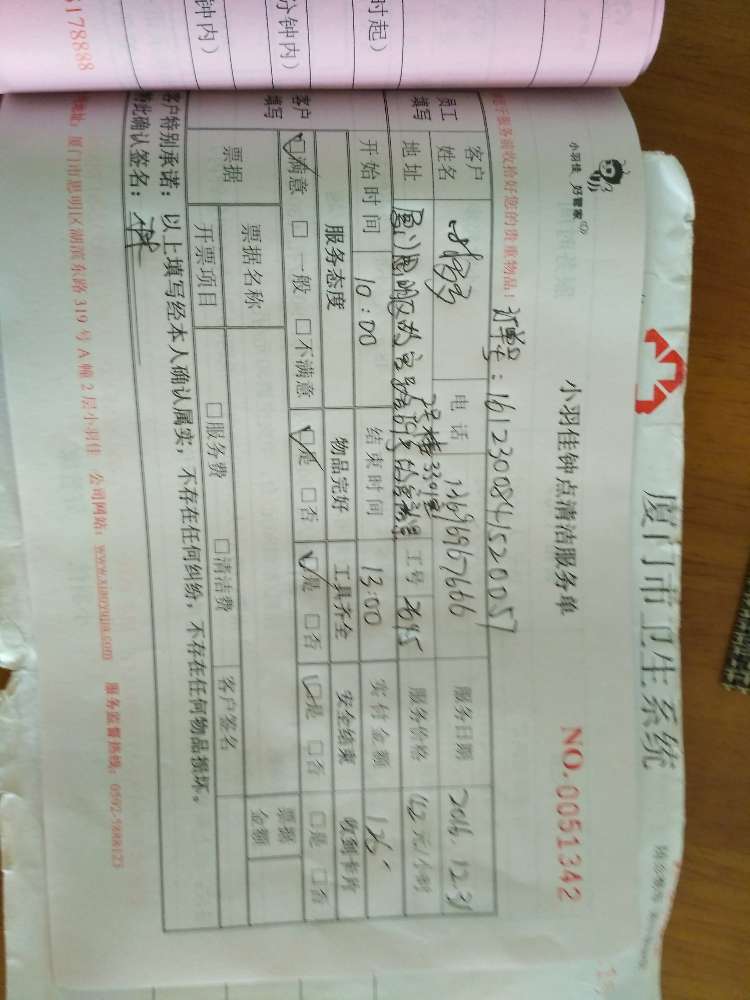 厦门市卫生系统
小羽佳 好管家
小羽佳钟点清洁服务单
NO.0051342
订单号：161230084152005
服务前收拾好您的贵重物品！
员工填写
客户姓名
电话
13696967666
服务日期
2016.12.31
地址
工号
服务价格
42元/小时
开始时间
10:00
结束时间
13:00
实付金额
126
客户填写
服务态度
物品完好
工具齐全
安全结束
收到卡片
☑满意 □一般 □不满意
☑是 □否
☑是 □否
☑是 □否
□是 □否
票据
票据名称
票据金额
开票项目
□服务费 □清洁费
客户签名
客户特别承诺：以上填写经本人确认属实，不存在任何纠纷，不存在任何物品损坏。
特此确认签名：
地址：厦门市思明区湖滨东路319号A幢2层小羽佳 公司网站：www.xiaoyujia.com 服务监督热线：0592-5888123
时起）
分钟内）
钟内）
5178888